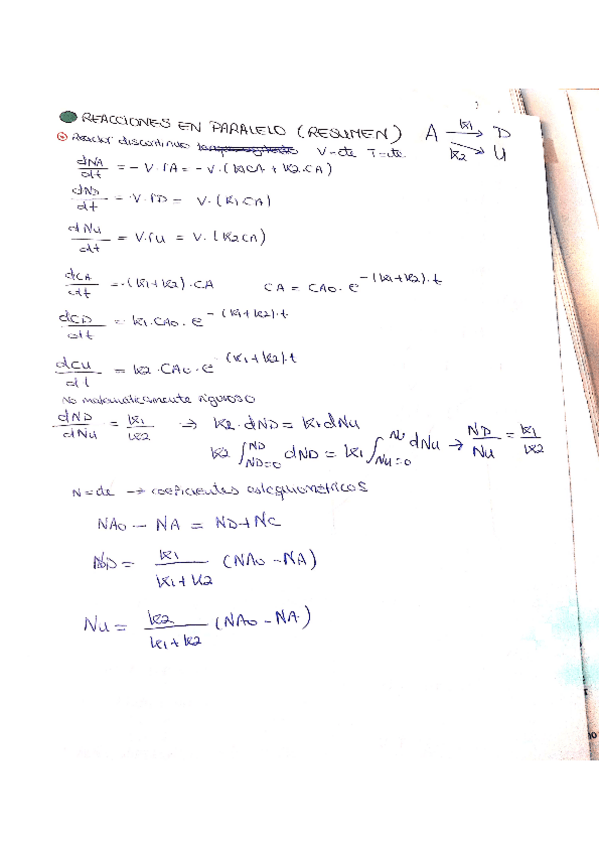 REACCIONES EN PARALELO (RESUMEN) A k1→ D
k2→ U
Reactor discontinuo V=cte T=cte.
dNA/dt = - V. rA = - V. (k1CA + k2.CA)
dND/dt = V. rD = V. (k1 CA)
dNu/dt = V. ru = V. (k2CA)
dCA/dt = -(k1+k2).CA CA = CA0. e^-(k1+k2).t
dCD/dt = k1.CA0. e^-(k1+k2).t
dCU/dt = k2.CA0.e^-(k1+k2).t
No matemáticamente riguroso
dND/dNu = k1/k2 → k2.dND = k1dNu
k2 ∫ND=0^ND dND = k1 ∫Nu=0^Nu dNu → ND/Nu = k1/k2
N=de → coeficientes estequiométricos
NA0 - NA = ND+NC
ND = k1/(k1+k2) (NA0 - NA)
Nu = k2/(k1+k2) (NA0 - NA)
10